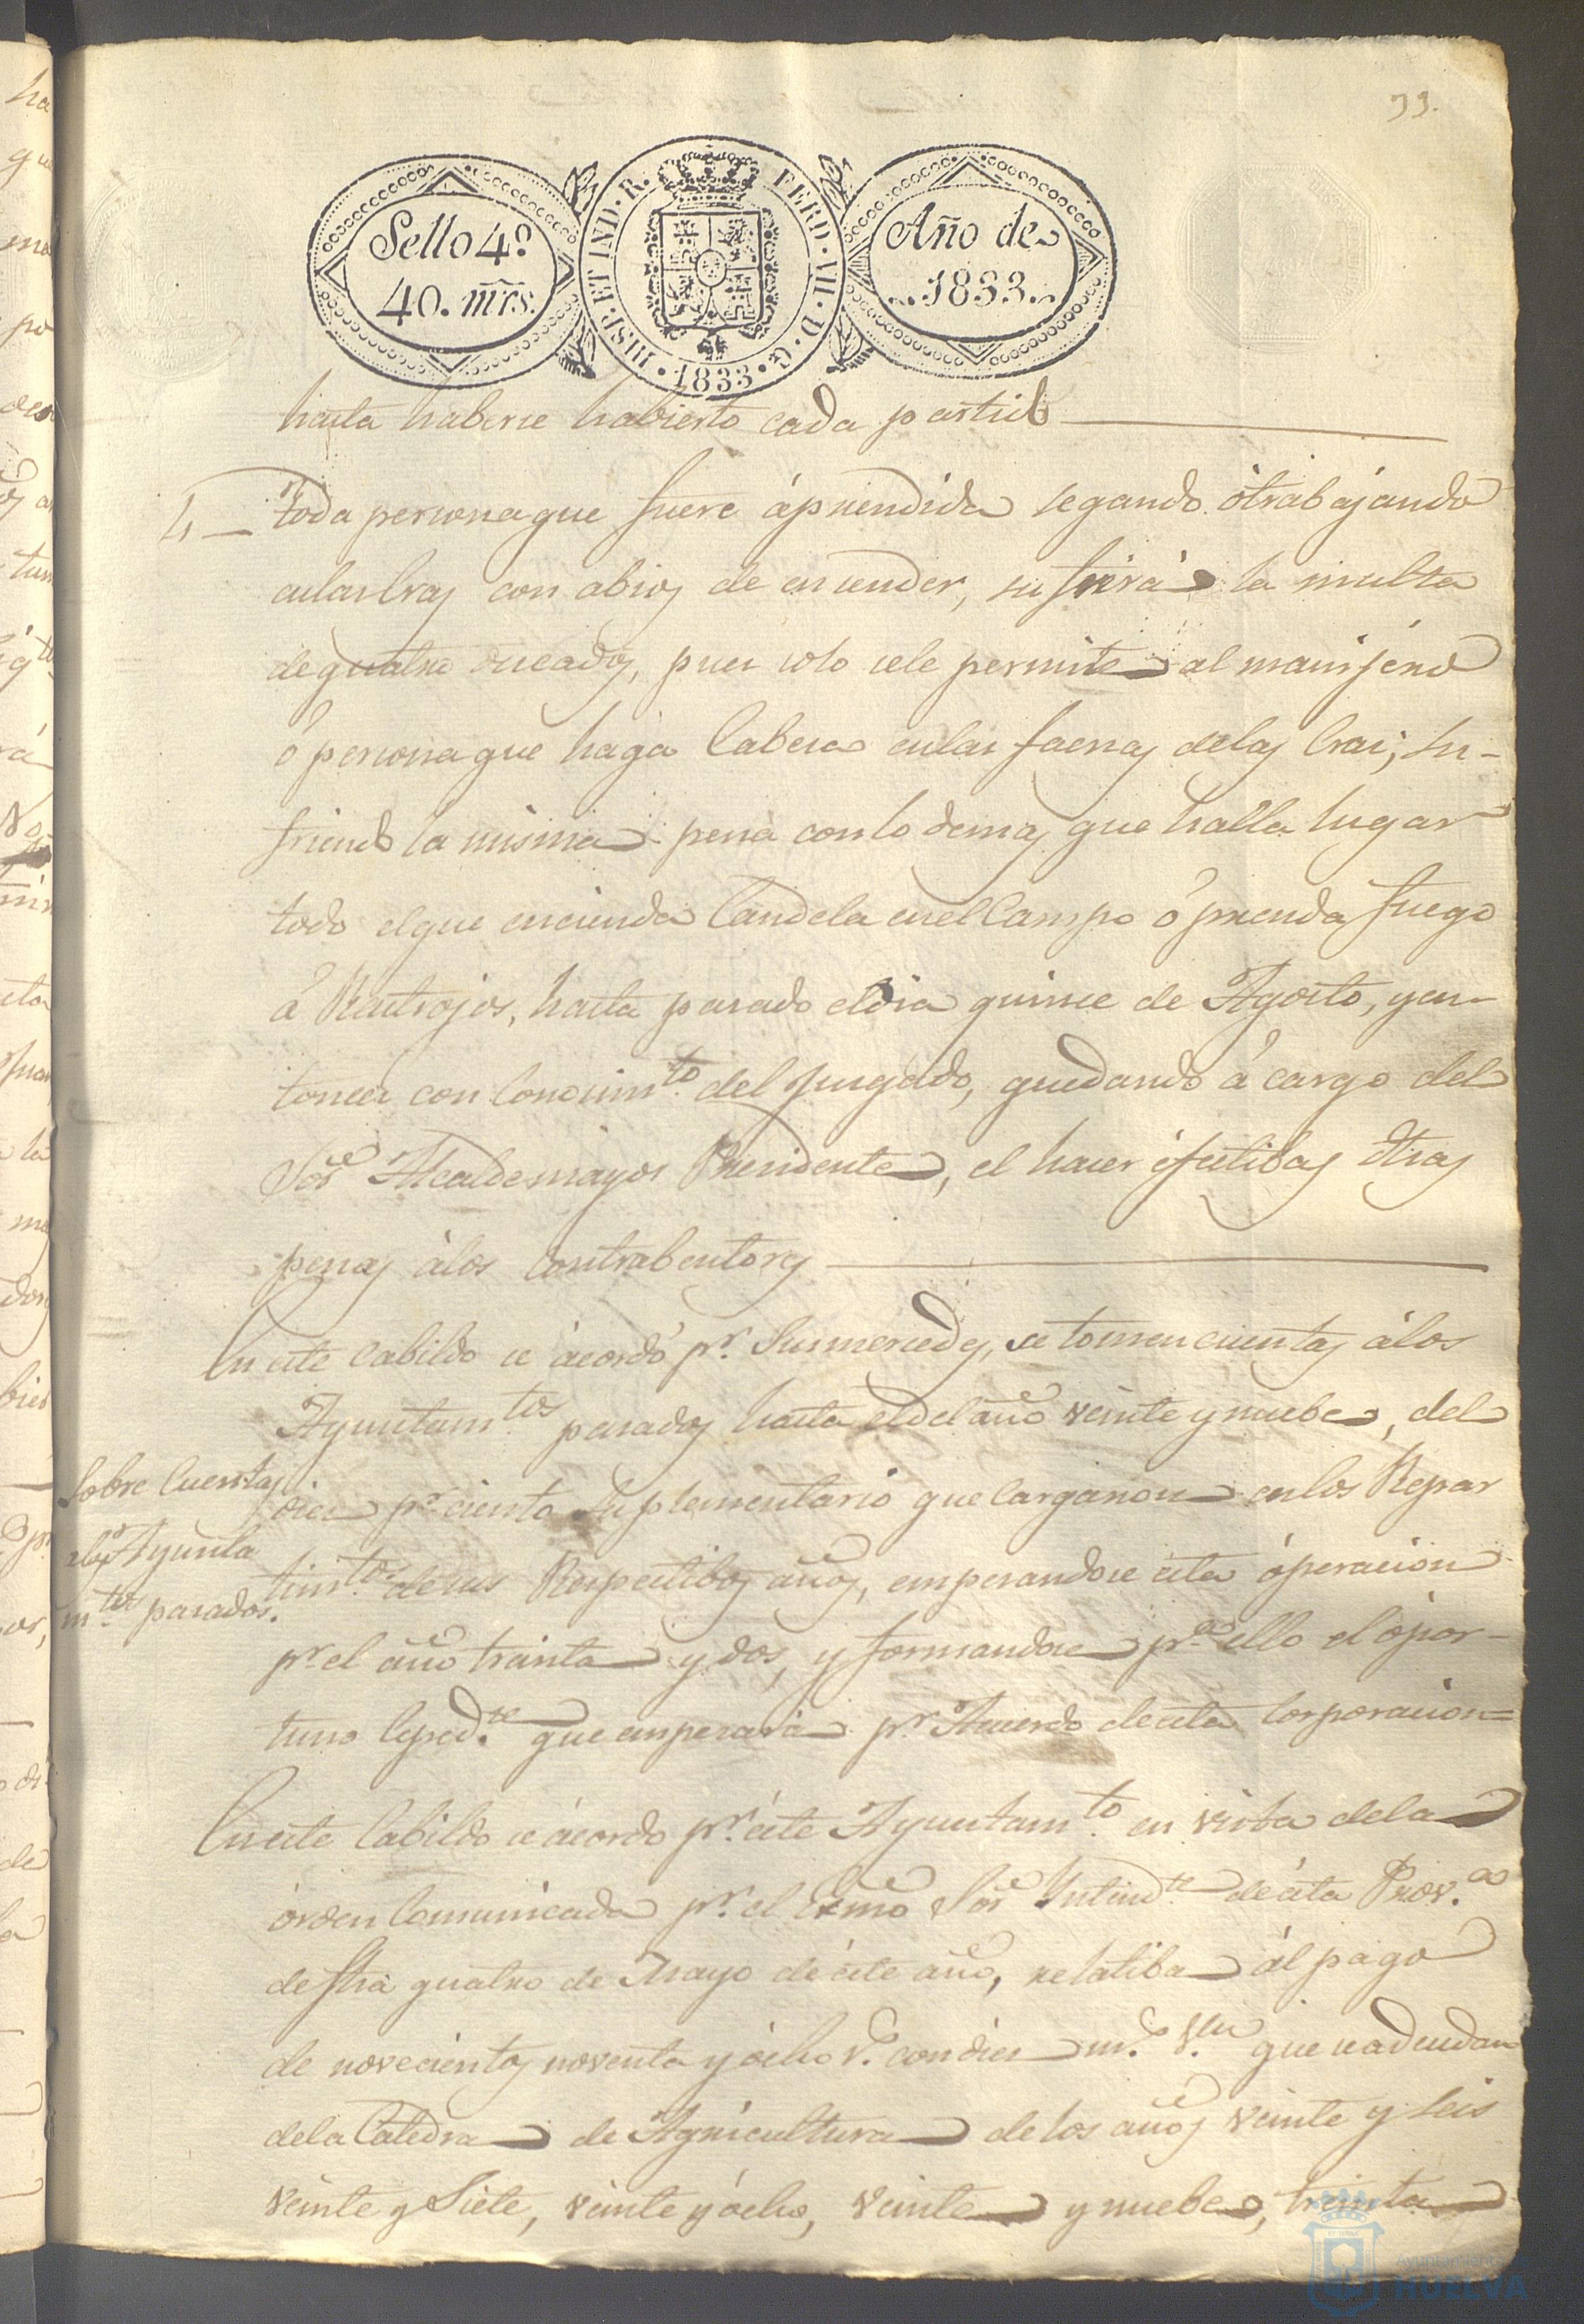 33.
Sello 4º
40. mrs.
HISP. ET IND. R. FERD. VII. D. G. 1833.
Año de
1833.
hasta haberse habierto cada partido
4 Toda persona que fuere áprendida segando ótrabajando
enlas Eras con abios de encender, sufrirá la multa
de quatro ducados, pues solo sele permite al manijero
ó persona que haga Cabesa enlas faenas delas Eras; su-
friendo la misma pena conlo demas que halla lugar
todo elque encienda Candela enel Campo ó prenda fuego
á Rastrojos, hasta pasado eldia quince de Agosto, yen-
tonces con Conocimto. del Jusgado, quedando á cargo del
Sor. Alcaldemayor Presidente, el hacer éfectibas dhas
penas álos Contrabentores
En este Cabildo se ácordó pr. Sus mercedes, se tomen cuentas álos
Ayuntamtos. pasados hasta eldel año veinte y nuebe, del
Sobre Cuentas
alos Ayunta
mtos. pasados.
dies pr. ciento Suplementario que Cargaron en los Repar
timtos. desus Respectibos años, empesandose esta óperacion
pr. el año treinta y dos, y formandose pa. ello el ópor-
tuno Espedte. que empesará pr. Acuerdo deesta Corporacion=
En este Cabildo se ácordo pr. éste Ayuntamto. en vista dela
órden Comunicada pr. el Exmo Sor. Intendte. deésta Prova.
de fha quatro de Mayo de éste año, relatiba ál pago
de novecientos noventa y ócho rs. con dies ms. vn. que se adeudan
dela Catedra de Agricultura de los años veinte y Seis
veinte y Siete, veinte y ócho, veinte y nuebe, treinta
Ayuntamiento de
HUELVA